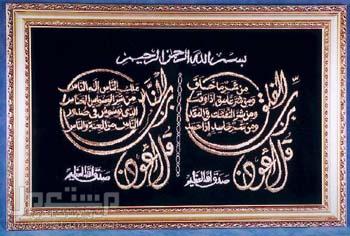 بسم الله الرحمن الرحيم
قل أعوذ برب الفلق
من شر ما خلق
ومن شر غاسق إذا وقب
ومن شر النفثت في العقد
ومن شر حاسد إذا حسد
صدق الله العظيم
قل أعوذ برب الناس
ملك الناس اله الناس
من شر الوسواس الخناس
الذي يوسوس في صدور
الناس من الجنة والناس
صدق الله العظيم
مستعمل